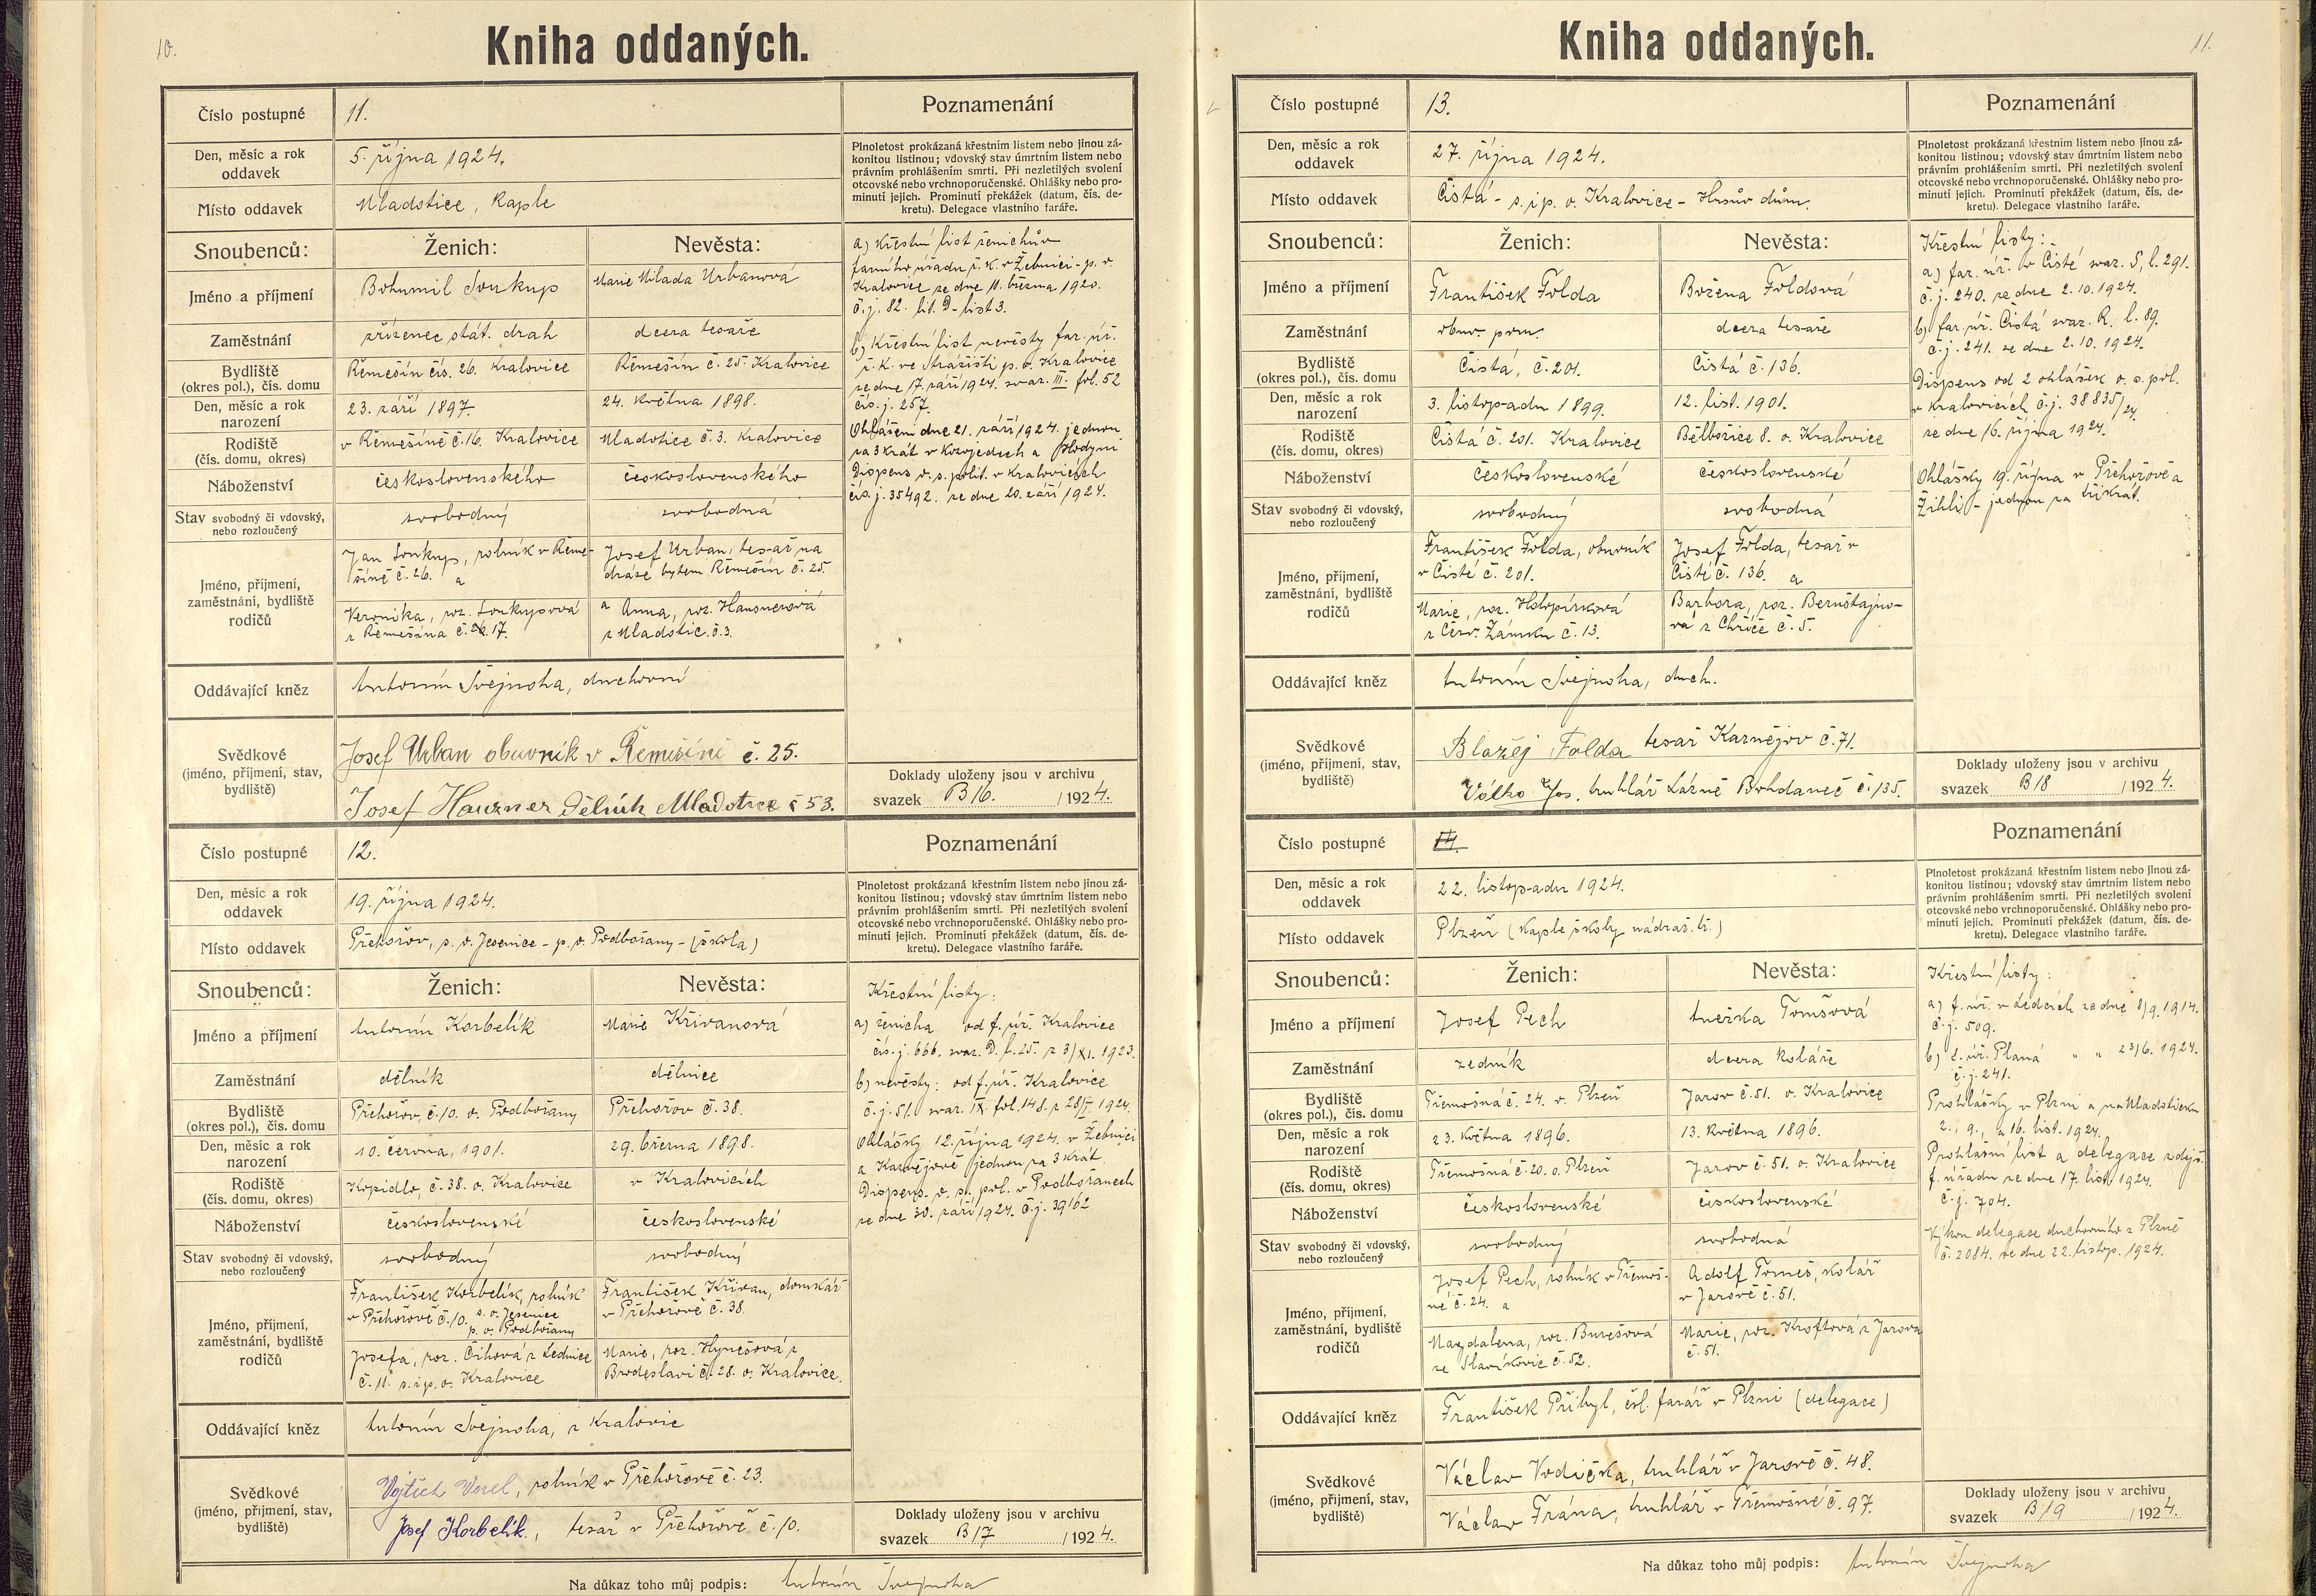 10.
Kniha oddaných.
Číslo postupné 11.
Poznamenání
Den, měsíc a rok oddavek 5. října 1924.
Místo oddavek Mladotice, Kaple
Plnoletost prokázaná křestním listem nebo jinou zá-
konitou listinou; vdovský stav úmrtním listem nebo
právním prohlášením smrti. Při nezletilých svolení
otcovské nebo vrchnoporučenské. Ohlášky nebo pro-
minutí jejich. Prominutí překážek (datum, čís. de-
kretu). Delegace vlastního faráře.
Snoubenců: Ženich: Nevěsta:
Jméno a příjmení Bohumil Soukup Marie Milada Urbanová
Zaměstnání zřízenec stát. drah dcera tesaře
Bydliště (okres pol.), čís. domu Řemešín čís. 26. Kralovice Řemešín č. 25. Kralovice
Den, měsíc a rok narození 23. září 1897. 24. května 1898.
Rodiště (čís. domu, okres) v Řemešíně č. 16. Kralovice Mladotice č. 3. Kralovice
Náboženství československého československého
Stav svobodný či vdovský, nebo rozloučený svobodný svobodná
Jméno, příjmení, zaměstnání, bydliště rodičů
Jan Soukup, rolník v Řeme-
šíně č. 26. a
Veronika, roz. Soukupová
z Řemešína č. 17.
Josef Urban, tesař na
dráze bytem Řemešín č. 25.
a Anna, roz. Hausnerová
z Mladotic č. 3.
Oddávající kněz Antonín Švejnoha, duchovní
Svědkové (jméno, příjmení, stav, bydliště)
Josef Urban obuvník v Řemešíně č. 25.
Josef Hausner dělník Mladotice č 53.
a) Křestní list ženichův
farního úřadu ř. k. v Žebnici - p. o.
Kralovice ze dne 11. března 1920.
č. j. 82. lit. D - list 3.
b) Křestní list nevěsty far. úř.
ř. k. ve Strážišti p. o. Kralovice
ze dne 17. září 1924. svaz. III. fol. 52
čís. j. 257.
Ohlášení dne 21. září 1924. jednou
za 3 krát v Kozojedech a Hodyni
Dispens o. s. polit. v Kralovicích
čís. j. 35492. ze dne 20. září 1924.
Doklady uloženy jsou v archivu
svazek B16. /1924.
Číslo postupné 12.
Poznamenání
Den, měsíc a rok oddavek 19. října 1924.
Místo oddavek Přehořov, s. o. Jesenice - p. o. Podbořany - (škola)
Plnoletost prokázaná křestním listem nebo jinou zá-
konitou listinou; vdovský stav úmrtním listem nebo
právním prohlášením smrti. Při nezletilých svolení
otcovské nebo vrchnoporučenské. Ohlášky nebo pro-
minutí jejich. Prominutí překážek (datum, čís. de-
kretu). Delegace vlastního faráře.
Snoubenců: Ženich: Nevěsta:
Jméno a příjmení Antonín Korbelík Marie Křivanová
Zaměstnání dělník dělnice
Bydliště (okres pol.), čís. domu Přehořov, č. 10. o. Podbořany Přehořov č. 38.
Den, měsíc a rok narození 10. června, 1901. 29. března 1898.
Rodiště (čís. domu, okres) Kopidlo, č. 38. o. Kralovice v Kralovicích
Náboženství československé československé
Stav svobodný či vdovský, nebo rozloučený svobodný svobodný
Jméno, příjmení, zaměstnání, bydliště rodičů
František Korbelík, rolník
v Přehořově č. 10. s. o. Jesenice
p. o. Podbořany
Josefa, roz. Čihová z Lednice
č. 11. s. i p. o. Kralovice
František Křivan, domkář
v Přehořově č. 38.
Marie, roz. Hynešová z
Brodeslavi č. 28. o. Kralovice.
Oddávající kněz Antonín Švejnoha, z Kralovic
Svědkové (jméno, přijmení, stav, bydliště)
Vojtěch Vorel, rolník v Přehořově č. 23.
Josef Korbelík, tesař v Přehořově č. 10.
Křestní listy:
a) ženicha od f. úř. Kralovice
čís. j. 666. svaz. D. f. 25. z 3/XI. 1923.
b) nevěsty: od f. úř. Kralovice
č. j. 51. svaz. IX. fol. 148. z 28/I. 1924.
Ohlášky 12. října 1924. v Žebnici
a Karnějově jednou za 3 krát
Dispens. o. s. pol. v Podbořanech
ze dne 30. září 1924. č. j. 39162
Doklady uloženy jsou v archivu
svazek B17 /1924.
Na důkaz toho můj podpis: Antonín Švejnoha
11.
Kniha oddaných.
Číslo postupné 13.
Poznamenání
Den, měsíc a rok oddavek 27. října 1924.
Místo oddavek Čistá - s. i p. o. Kralovice - Husův dům.
Plnoletost prokázaná křestním listem nebo jinou zá-
konitou listinou; vdovský stav úmrtním listem nebo
právním prohlášením smrti. Při nezletilých svolení
otcovské nebo vrchnoporučenské. Ohlášky nebo pro-
minutí jejich. Prominutí překážek (datum, čís. de-
kretu). Delegace vlastního faráře.
Snoubenců: Ženich: Nevěsta:
Jméno a příjmení František Folda Božena Foldová
Zaměstnání obuv. pom. dcera tesaře
Bydliště (okres pol.), čís. domu Čistá, č. 201. Čistá č. 136.
Den, měsíc a rok narození 3. listopadu 1899. 12. list. 1901.
Rodiště (čís. domu, okres) Čistá č. 201. Kralovice Bělbořice 8. o. Kralovice
Náboženství československé československé
Stav svobodný či vdovský, nebo rozloučený svobodný svobodná
Jméno, příjmení, zaměstnání, bydliště rodičů
František Folda, obuvník
v Čisté č. 201.
Marie, roz. Holopírková
z Červ. Zámku č. 13.
Josef Folda, tesař v
Čisté č. 136. a
Barbora, roz. Bernštajno-
vá z Chříče č. 5.
Oddávající kněz Antonín Švejnoha, duch.
Svědkové (jméno, příjmení, stav, bydliště)
Blažej Folda tesař Karnějov č. 71.
Válko Jos. truhlář Lázně Bohdaneč č. 135.
Křestní listy:
a) far. úř. v Čisté svaz. S, l. 291.
č. j. 240. ze dne 2. 10. 1924.
b) far. úř. Čistá svaz. R. l. 89.
č. j. 241. ze dne 2. 10. 1924.
Dispens od 2 ohlášek o. s. pol.
v Kralovicích č. j. 38835/24.
ze dne 16. října 1924.
Ohlášky 19. října v Přehořově a
Žihli - jednou za třikrát.
Doklady uloženy jsou v archivu
svazek B18 /1924.
Číslo postupné 14.
Poznamenání
Den, měsíc a rok oddavek 22. listopadu 1924.
Místo oddavek Plzeň (Kaple školy nádraž. tř.)
Plnoletost prokázaná křestním listem nebo jinou zá-
konitou listinou; vdovský stav úmrtním listem nebo
právním prohlášením smrti. Při nezletilých svolení
otcovské nebo vrchnoporučenské. Ohlášky nebo pro-
minutí jejich. Prominutí překážek (datum, čís. de-
kretu). Delegace vlastního faráře.
Snoubenců: Ženich: Nevěsta:
Jméno a příjmení Josef Pech Anežka Tomšová
Zaměstnání zedník dcera koláře
Bydliště (okres pol.), čís. domu Třemošná č. 24. o. Plzeň Jarov č. 51. o. Kralovice
Den, měsíc a rok narození 23. května 1896. 13. května 1896.
Rodiště (čís. domu, okres) Třemošná č. 20. o. Plzeň Jarov č. 51. o. Kralovice
Náboženství československé československé
Stav svobodný či vdovský, nebo rozloučený svobodný svobodná
Jméno, příjmení, zaměstnání, bydliště rodičů
Josef Pech, rolník v Třemoš-
né č. 24. a
Magdalena, roz. Burešová
ze Slavíkovic č. 52.
Adolf Tomeš, kolář
v Jarově č. 51.
Marie, roz. Kroftová z Jarova
č. 51.
Oddávající kněz František Přibyl, čsl. farář v Plzni (delegace)
Svědkové (jméno, příjmení, stav, bydliště)
Václav Vodička, truhlář v Jarově č. 48.
Václav Frána, truhlář v Třemošné č. 97.
Křestní listy:
a) f. úř. v Ledcích ze dne 8/9. 1914.
č. j. 509.
b) f. úř. Planá " " 23/6. 1924.
č. j. 241.
Prohlášky v Plzni a na Mladoticku
2., 9., a 16. list. 1924.
Prohlašní list a delegace zdejš.
f. úřadu ze dne 17. list. 1924.
č. j. 704.
Výkon delegace duchovního z Plzně
č. 2084. ze dne 22. listop. 1924.
Doklady uloženy jsou v archivu
svazek B19 /1924.
Na důkaz toho můj podpis: Antonín Švejnoha